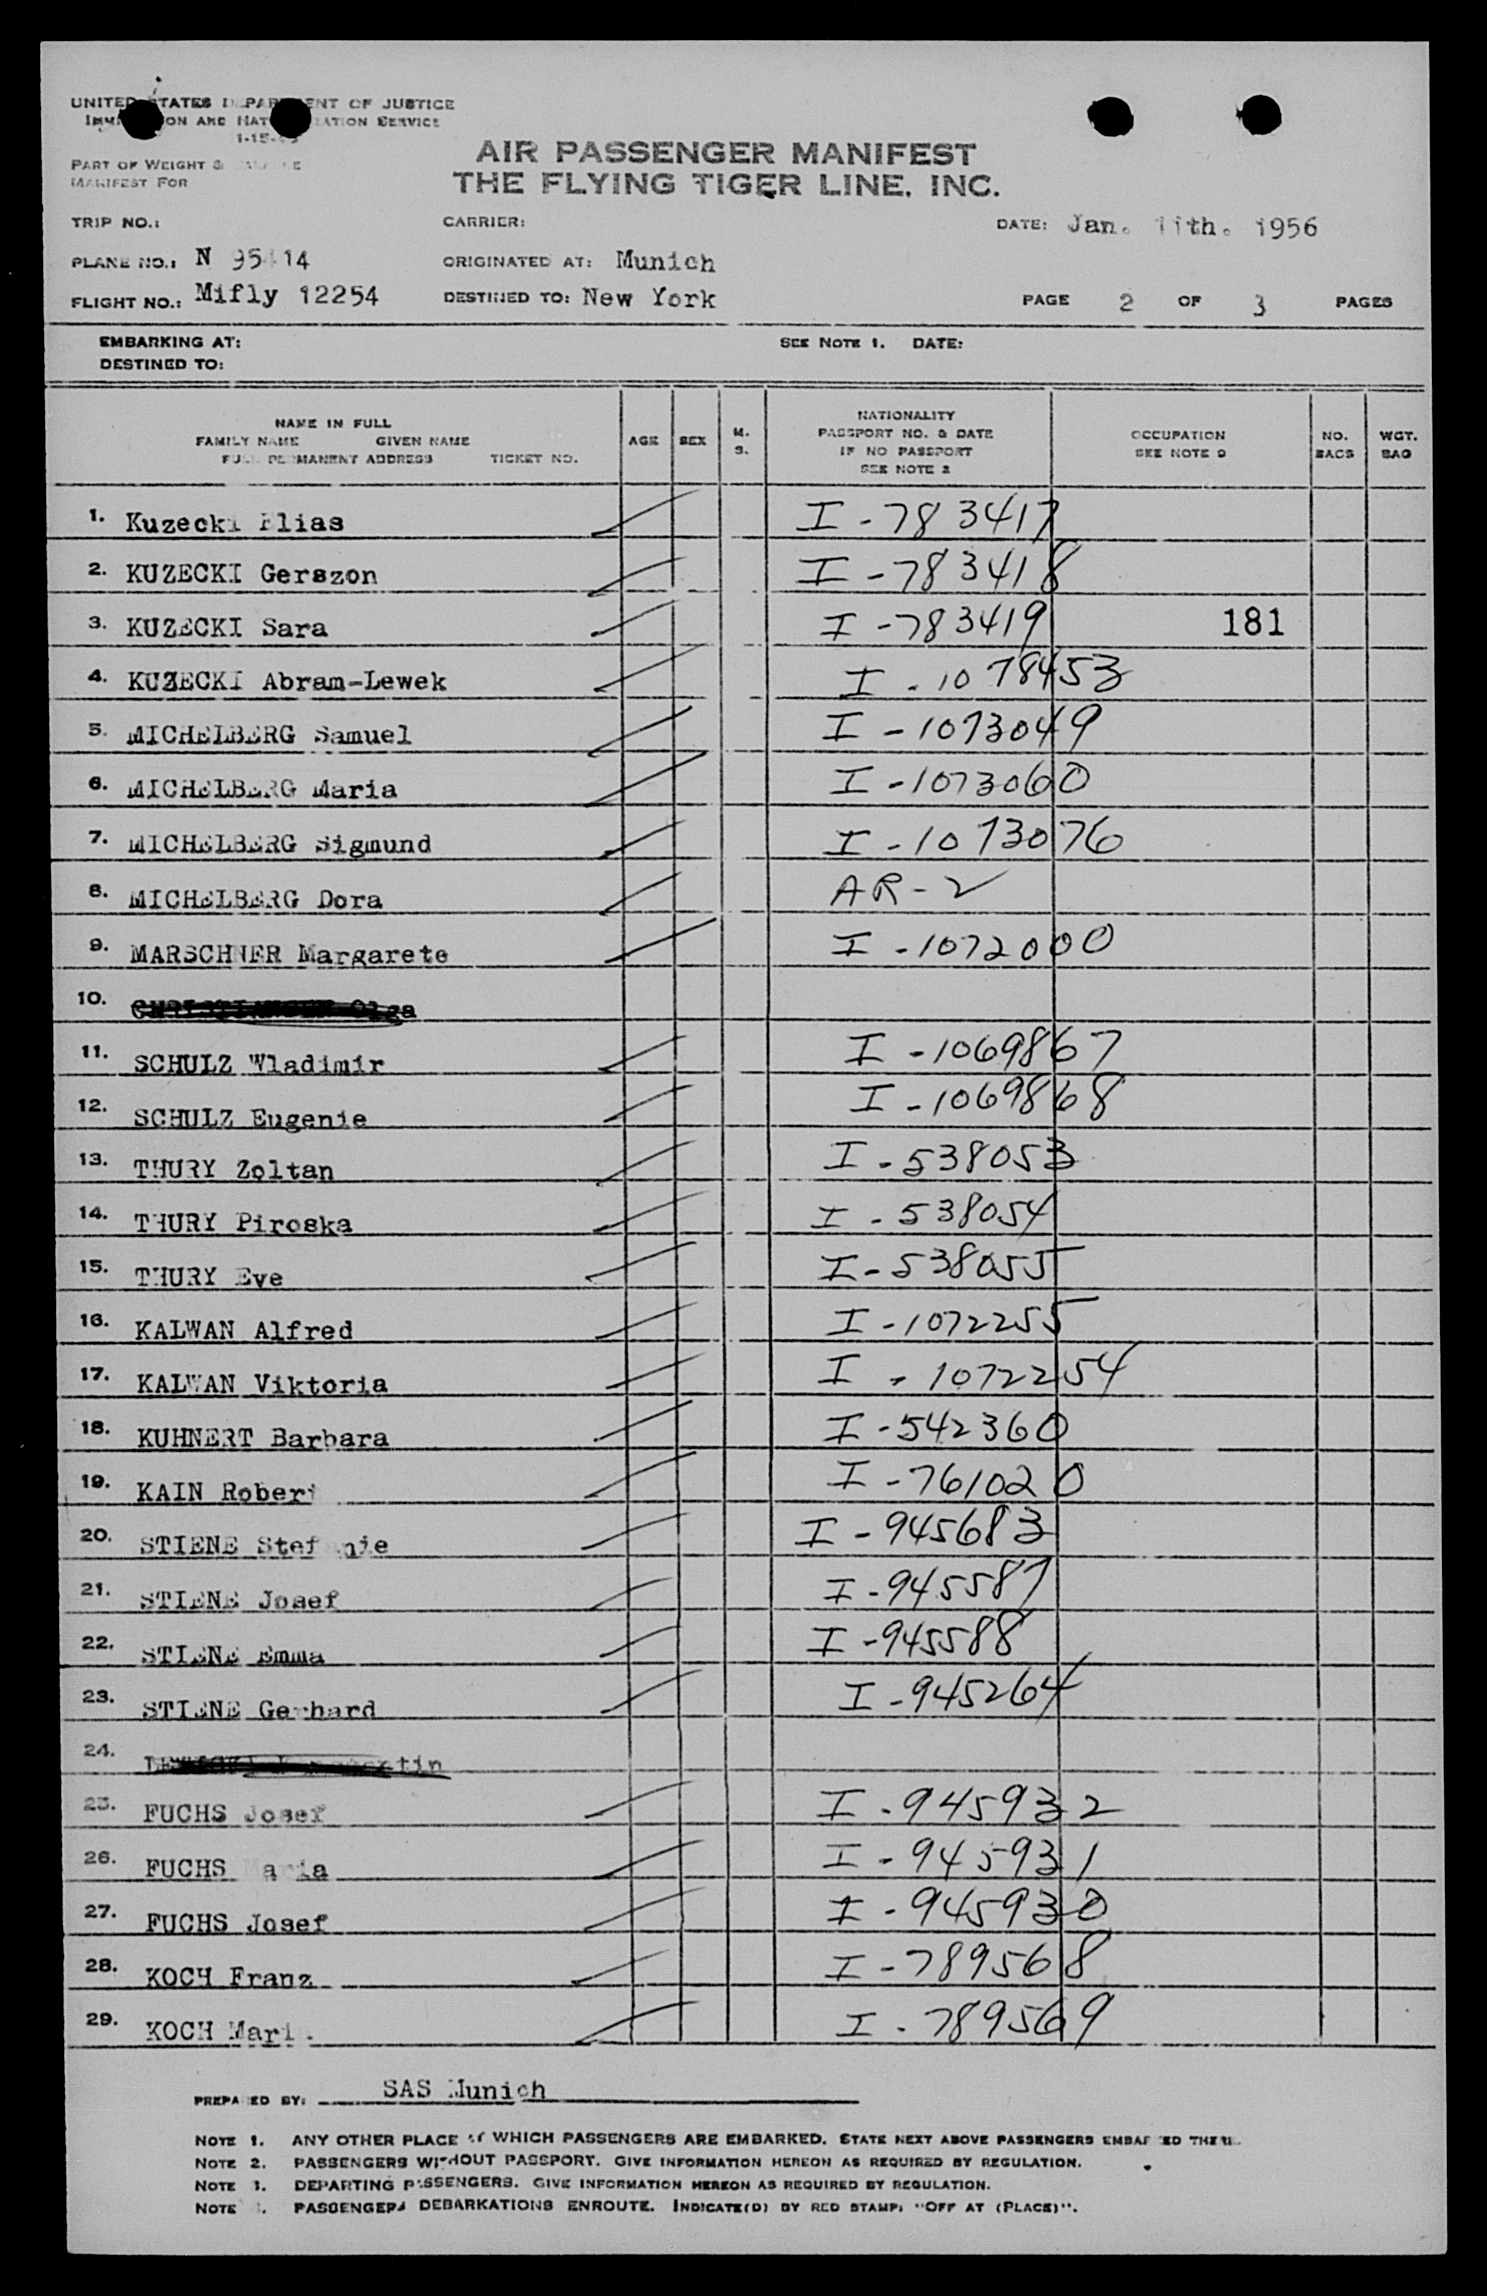 UNITED STATES DEPARTMENT OF JUSTICE
IMMIGRATION AND NATURALIZATION SERVICE
PART OF WEIGHT &
MANIFEST FOR
AIR PASSENGER MANIFEST
THE FLYING TIGER LINE, INC.
TRIP NO.: CARRIER: DATE: Jan. 11th. 1956
PLANE NO.: N 95414 ORIGINATED AT: Munich
FLIGHT NO.: Mifly 12254 DESTINED TO: New York PAGE 2 OF 3 PAGES
EMBARKING AT: SEE NOTE 1. DATE:
DESTINED TO:
NAME IN FULL
FAMILY NAME GIVEN NAME
FULL PERMANENT ADDRESS TICKET NO.
AGE SEX M.
S.
NATIONALITY
PASSPORT NO. & DATE
IF NO PASSPORT
SEE NOTE 2
OCCUPATION
SEE NOTE
NO.
BAGS
WGT.
BAG
1. Kuzecki Elias I-783417
2. KUZECKI Gerszon I-783418
3. KUZECKI Sara I-783419 181
4. KUZECKI Abram-Lewek I-1078453
5. MICHELBERG Samuel I-1073049
6. MICHELBERG Maria I-1073060
7. MICHELBERG Sigmund I-1073076
8. MICHELBERG Dora AR-2
9. MARSCHNER Margarete I-1072000
10. Olga
11. SCHULZ Wladimir I-1069867
12. SCHULZ Eugenie I-1069868
13. THURY Zoltan I-538053
14. THURY Piroska I-538054
15. THURY Eve I-538055
16. KALWAN Alfred I-1072255
17. KALWAN Viktoria I-1072254
18. KUHNERT Barbara I-542360
19. KAIN Robert I-761020
20. STIENE Stefanie I-945683
21. STIENE Josef I-945587
22. STIENE Emma I-945588
23. STIENE Gerhard I-945264
24.
25. FUCHS Josef I-945932
26. FUCHS Maria I-945931
27. FUCHS Josef I-945930
28. KOCH Franz I-789568
29. KOCH Mari I-789569
PREPARED BY: SAS Munich
NOTE 1. ANY OTHER PLACE AT WHICH PASSENGERS ARE EMBARKED. STATE NEXT ABOVE PASSENGERS EMBARKED THERE.
NOTE 2. PASSENGERS WITHOUT PASSPORT. GIVE INFORMATION HEREON AS REQUIRED BY REGULATION.
NOTE 3. DEPARTING PASSENGERS. GIVE INFORMATION HEREON AS REQUIRED BY REGULATION.
NOTE . PASSENGERS DEBARKATIONS ENROUTE. INDICATE(D) BY RED STAMP: "OFF AT (PLACE)".